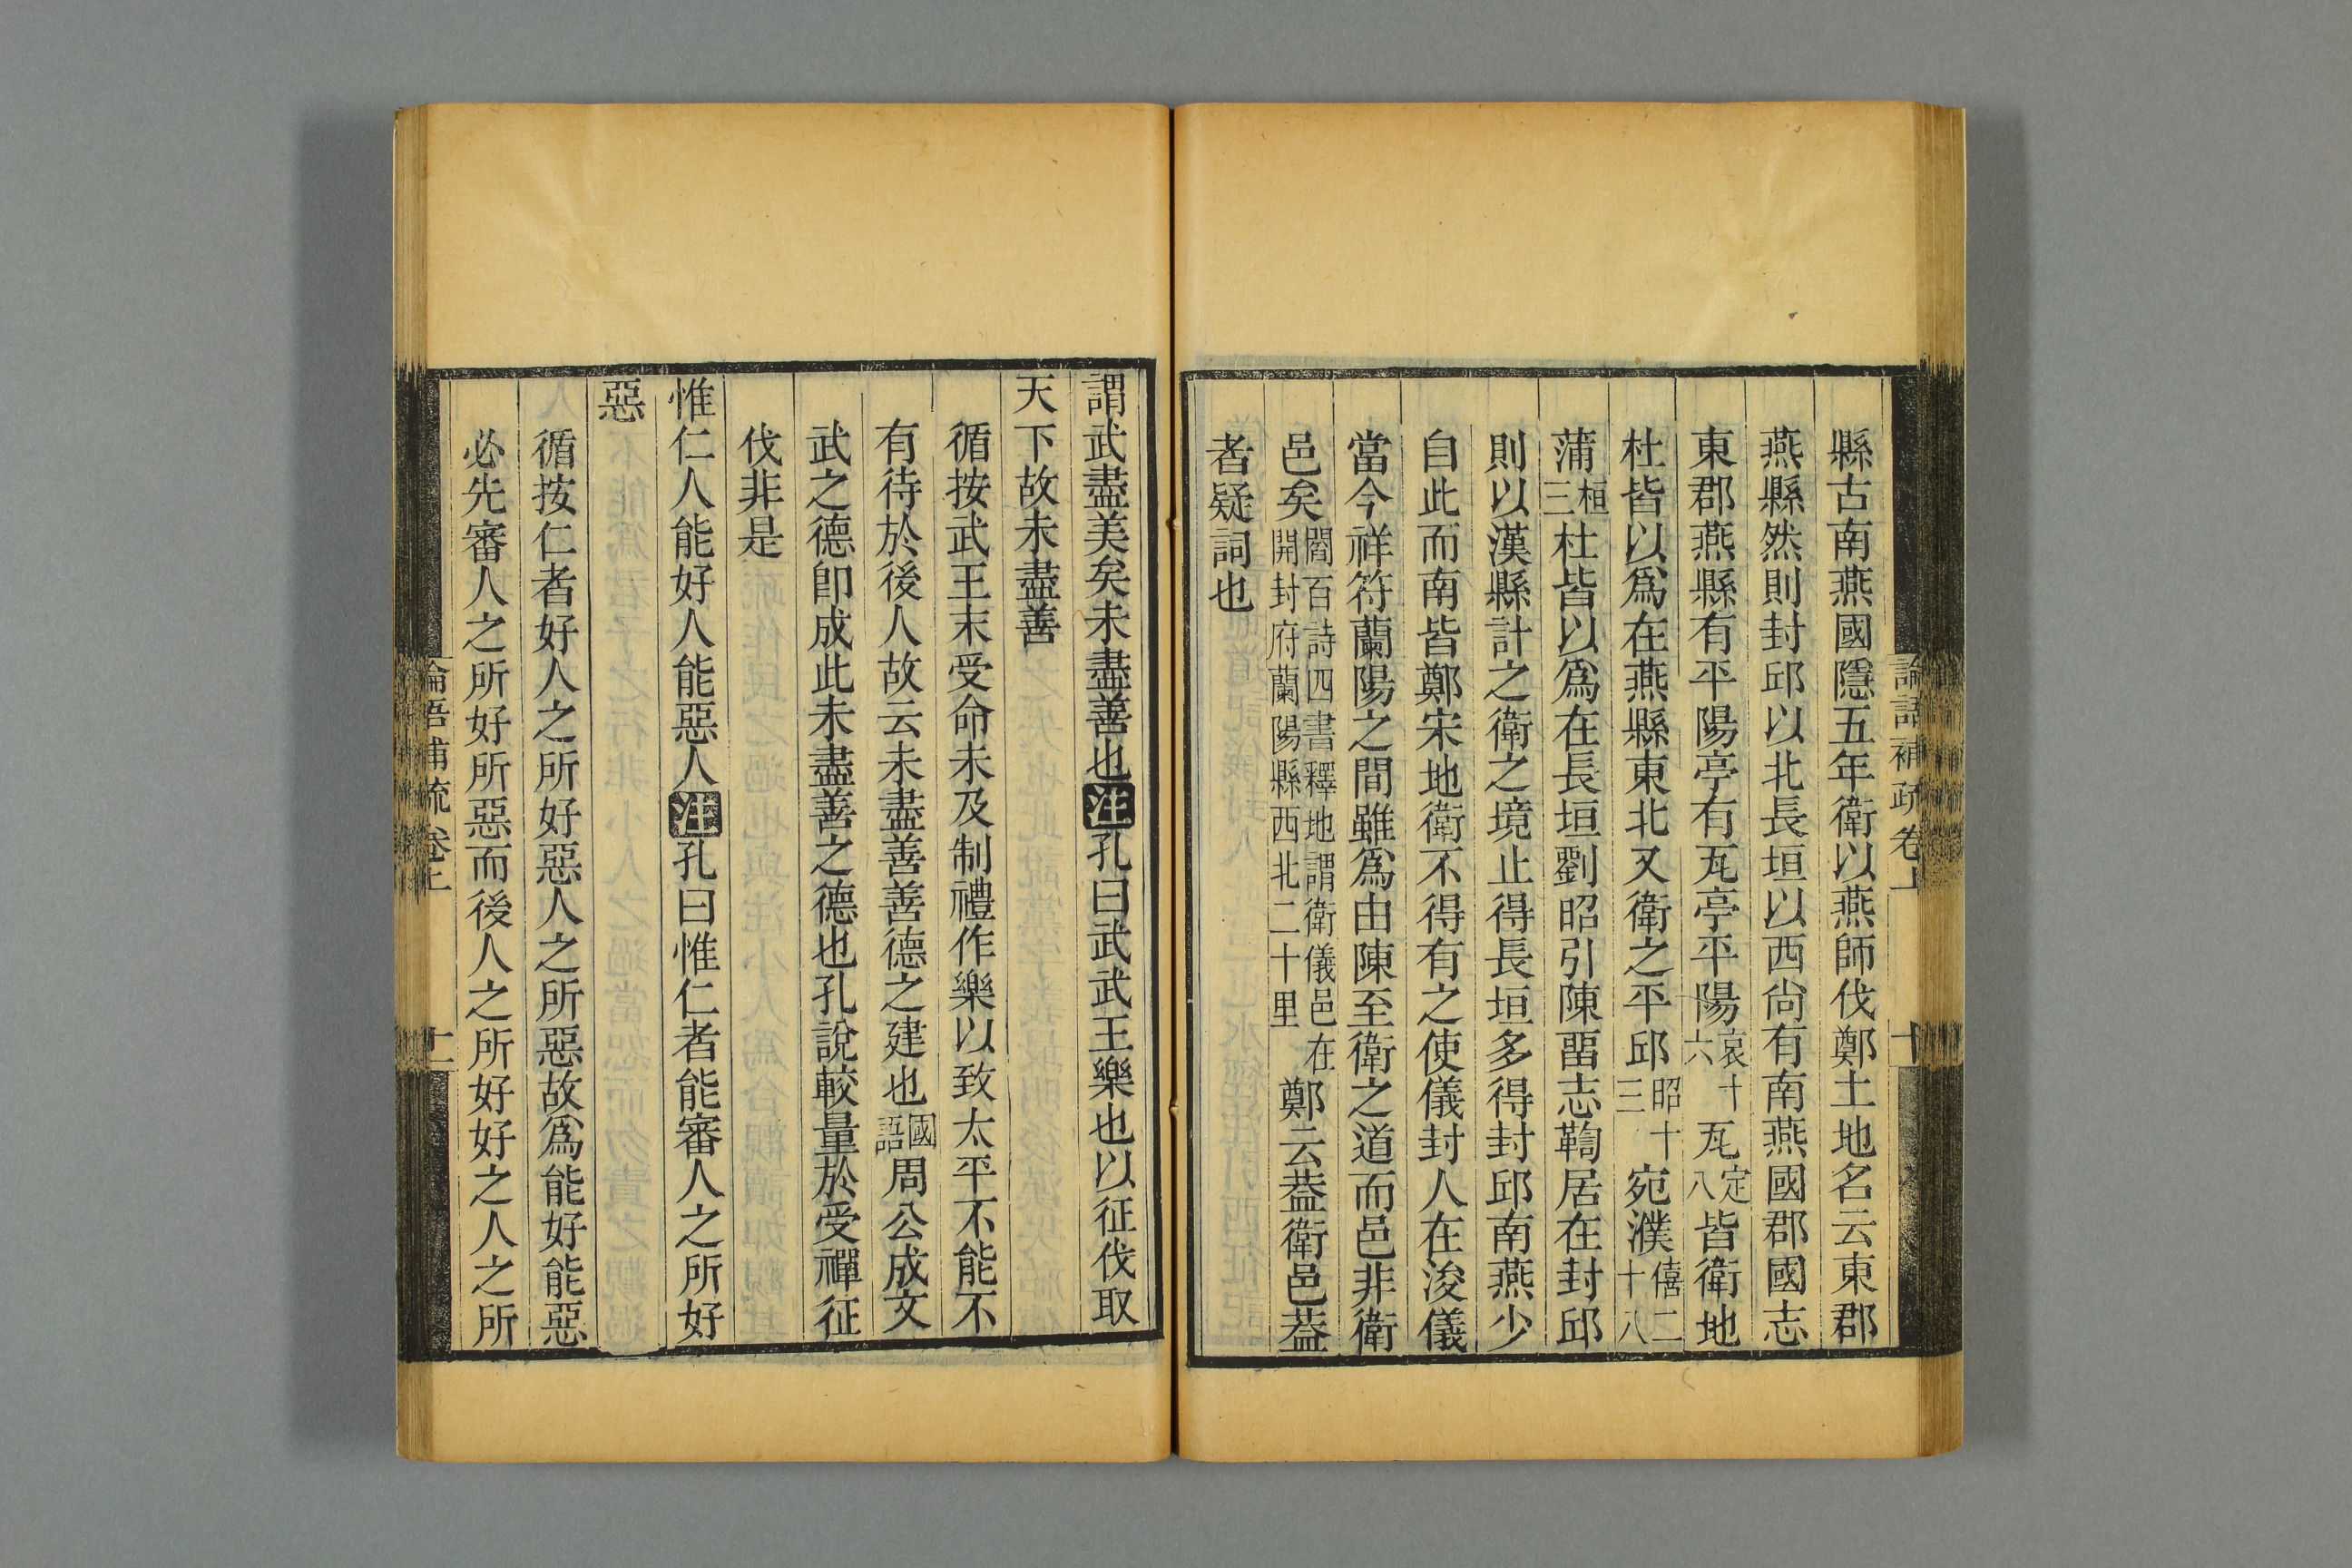 論語補疏卷上
十
縣古南燕國隱五年衛以燕師伐鄭土地名云東郡
燕縣然則封邱以北長垣以西尙有南燕國郡國志
東郡燕縣有平陽亭有瓦亭平陽哀十六瓦定八皆衛地
杜皆以爲在燕縣東北又衛之平邱昭十三宛濮僖二十八
蒲桓三杜皆以爲在長垣劉昭引陳畱志鞫居在封邱
則以漢縣計之衛之境止得長垣多得封邱南燕少
自此而南皆鄭宋地衛不得有之使儀封人在浚儀
當今祥符蘭陽之間雖爲由陳至衛之道而邑非衛
邑矣閻百詩四書釋地謂衛儀邑在開封府蘭陽縣西北二十里鄭云葢衛邑葢
者疑詞也
謂武盡美矣未盡善也注孔曰武武王樂也以征伐取
天下故未盡善
循按武王末受命未及制禮作樂以致太平不能不
有待於後人故云未盡善善德之建也國語周公成文
武之德卽成此未盡善之德也孔說較量於受禪征
伐非是
惟仁人能好人能惡人注孔曰惟仁者能審人之所好
惡
循按仁者好人之所好惡人之所惡故爲能好能惡
必先審人之所好所惡而後人之所好好之人之所
論語補疏卷上
十一